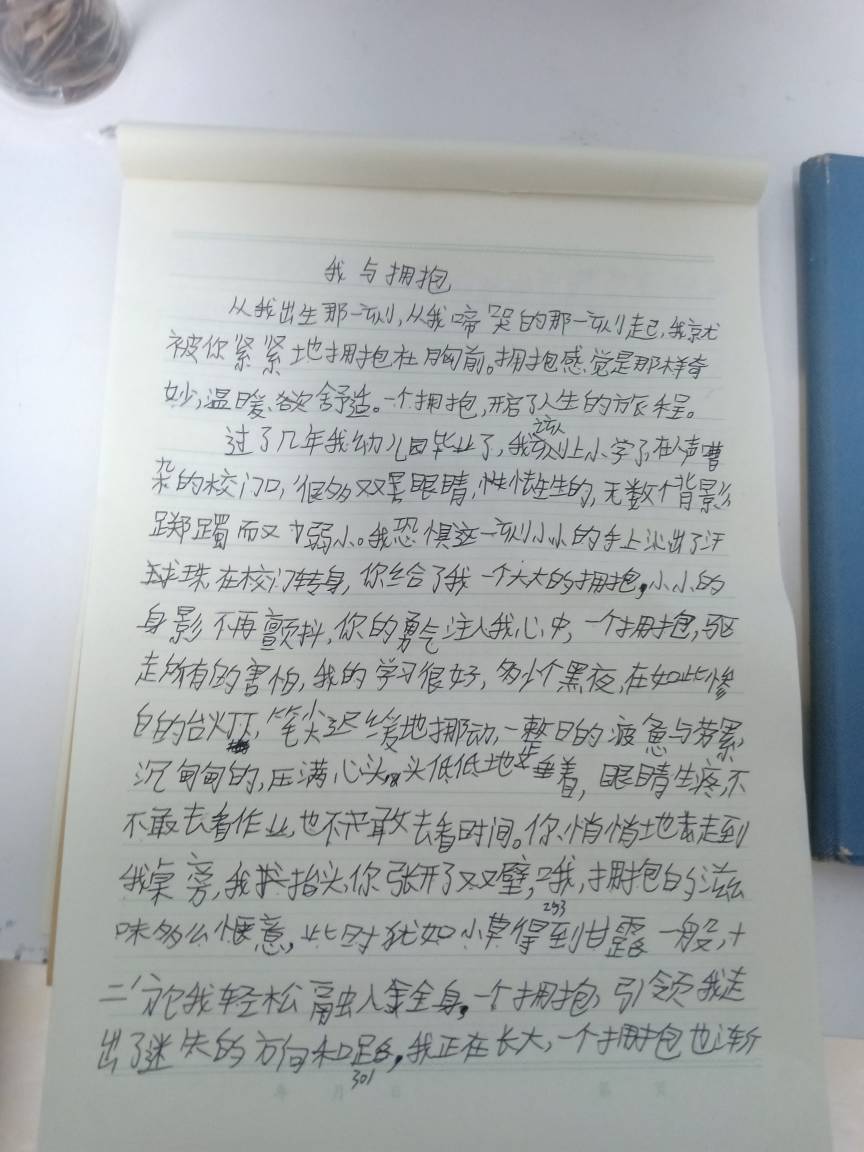 我与拥抱
从我出生那一刻,从我啼哭的那一刻起,我就
被你紧紧地拥抱在胸前。拥抱感觉是那样奇
妙,温暖舒适。一个拥抱,开启了人生的旅程。
过了几年我幼儿园毕业了,我该上小学了,在人声嘈
杂的校门口,很多双黑眼睛,怯怯生生的,无数个背影
踯躅而又弱小。我恐惧这一刻小小的手上沁出了汗
珠在校门转身,你给了我一个大大的拥抱,小小的
身影不再颤抖,你的勇气注入我心中,一个拥抱,驱
走所有的害怕,我的学习很好,多少个黑夜,在如此惨
白的台灯下,笔尖迟缓地挪动,一整日的疲惫与劳累,
沉甸甸的,压满心头,头低低地垂着,眼睛生疼,不
不敢去看作业,也不敢去看时间。你悄悄地走到
我桌旁,我抬头,你张开了双壁,哦,拥抱的滋
味多么惬意,此时犹如小草得到甘露一般,十
253
二分把我轻松融入全身,一个拥抱,引领我走
出了迷失的方向和路,我正在长大,一个拥抱也渐
301
年 月 日 第 页